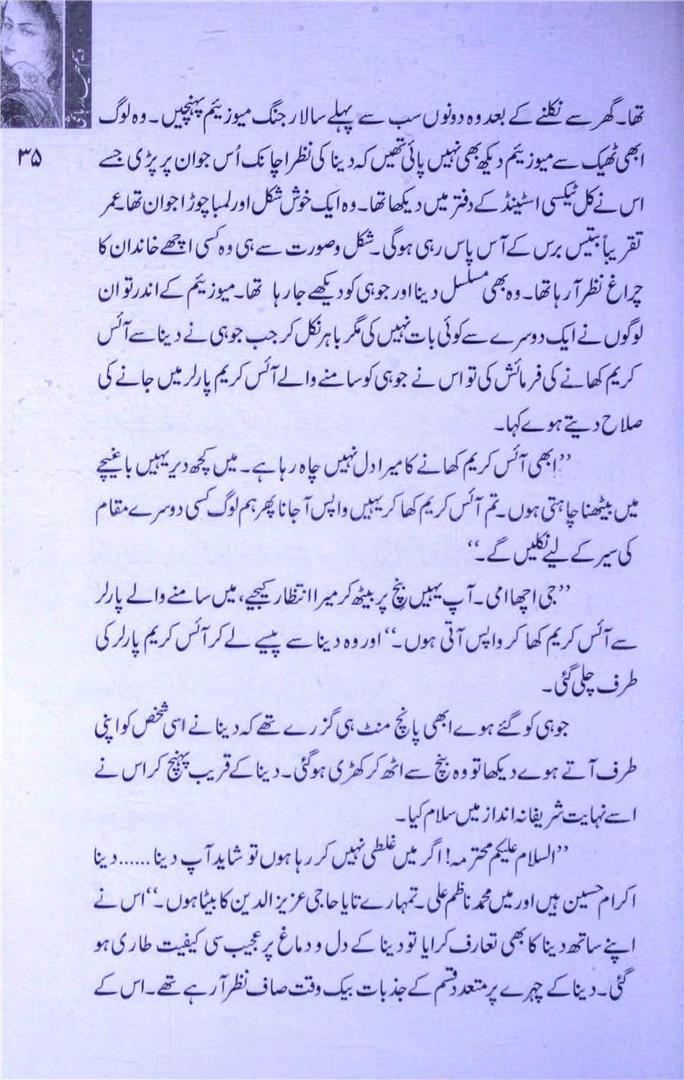 ۳۵
تھا۔ گھر سے نکلنے کے بعد وہ دونوں سب سے پہلے سالار جنگ میوزیئم پہنچیں۔ وہ لوگ
ابھی ٹھیک سے میوزیئم دیکھ بھی نہیں پائی تھیں کہ دینا کی نظر اچانک اُس جوان پر پڑی جسے
اس نے کل ٹیکسی اسٹینڈ کے دفتر میں دیکھا تھا۔ وہ ایک خوش شکل اور لمبا چوڑا جوان تھا۔ عمر
تقریباً بتیس برس کے آس پاس رہی ہوگی۔ شکل وصورت سے ہی وہ کسی اچھے خاندان کا
چراغ نظر آ رہا تھا۔ وہ بھی مسلسل دینا اور جوہی کو دیکھے جا رہا تھا۔ میوزیئم کے اندر تو ان
لوگوں نے ایک دوسرے سے کوئی بات نہیں کی مگر باہر نکل کر جب جوہی نے دینا سے آئس
کریم کھانے کی فرمائش کی تو اس نے جوہی کو سامنے والے آئس کریم پارلر میں جانے کی
صلاح دیتے ہوے کہا۔
’’ابھی آئس کریم کھانے کا میرا دل نہیں چاہ رہا ہے۔ میں کچھ دیر یہیں باغیچے
میں بیٹھنا چاہتی ہوں۔ تم آئس کریم کھا کر یہیں واپس آ جانا پھر ہم لوگ کسی دوسرے مقام
کی سیر کے لیے نکلیں گے۔‘‘
’’جی اچھا امی۔ آپ یہیں بنچ پر بیٹھ کر میرا انتظار کیجیے، میں سامنے والے پارلر
سے آئس کریم کھا کر واپس آتی ہوں۔‘‘ اور وہ دینا سے پیسے لے کر آئس کریم پارلر کی
طرف چلی گئی۔
جوہی کو گئے ہوے ابھی پانچ منٹ ہی گزرے تھے کہ دینا نے اسی شخص کو اپنی
طرف آتے ہوے دیکھا تو وہ بنچ سے اٹھ کر کھڑی ہوگئی۔ دینا کے قریب پہنچ کر اس نے
اسے نہایت شریفانہ انداز میں سلام کیا۔
’’السلام علیکم محترمہ! اگر میں غلطی نہیں کر رہا ہوں تو شاید آپ دینا...... دینا
اکرام حسین ہیں اور میں محمد ناظم علی۔ تمہارے تایا حاجی عزیز الدین کا بیٹا ہوں۔‘‘ اس نے
اپنے ساتھ دینا کا بھی تعارف کرایا تو دینا کے دل و دماغ پر عجیب سی کیفیت طاری ہو
گئی۔ دینا کے چہرے پر متعدد قسم کے جذبات بیک وقت صاف نظر آ رہے تھے۔ اس کے